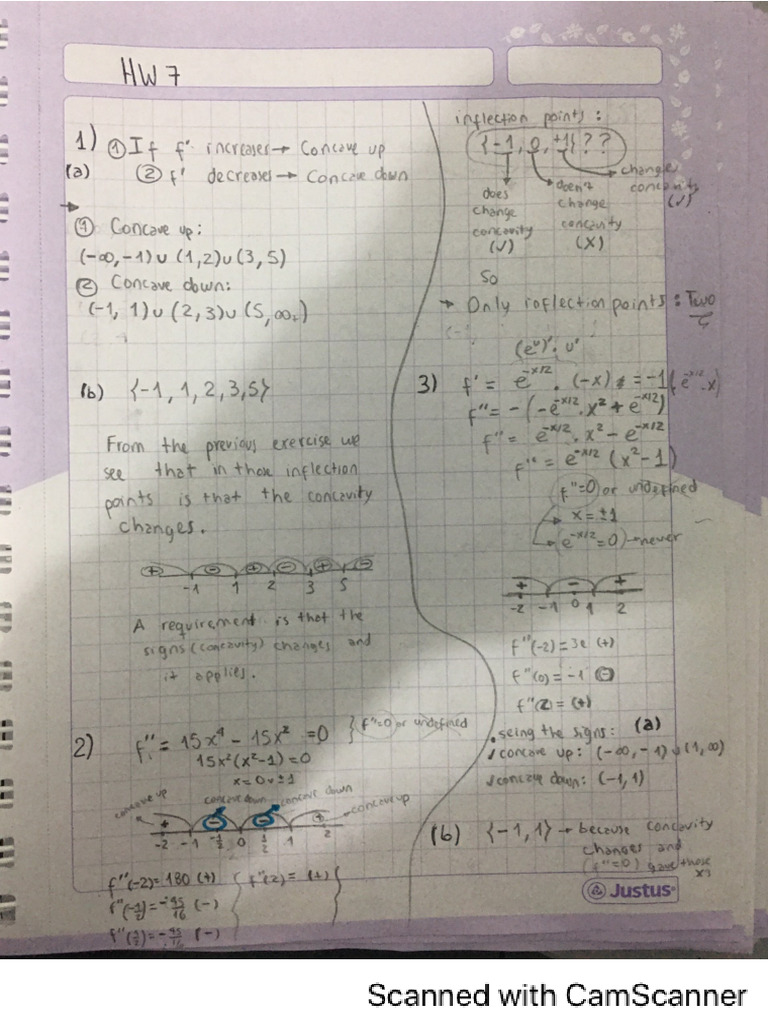 HW 7
1) ① If f' increases → Concave up
(a) ② f' decreases → Concave down
→
① Concave up:
(-∞, -1) ∪ (1,2) ∪ (3, 5)
② Concave down:
(-1, 1) ∪ (2, 3) ∪ (5, ∞)
(b) {-1, 1, 2, 3, 5}
From the previous exercise we
see that in those inflection
points is that the concavity
changes.
+ - + - + -
-1 1 2 3 5
A requirement is that the
signs (concavity) changes and
it applies.
2) f'' = 15x⁴ - 15x² = 0 } f''=0 or undefined
15x²(x²-1) = 0
x = 0 ∨ ±1
concave up concave down concave down concave up
+ - - +
-2 -1 -1/2 0 1/2 1 2
f''(-2) = 180 (+) { f''(2) = (+)
f''(-1/2) = -45/16 (-)
f''(1/2) = -45/16 (-)
inflection points:
{-1, 0, +1} ??
does
change
concavity
(✓)
doen't
change
concavity
(X)
changes
concavity
(✓)
So
→ Only inflection points: Two
(eᵘ)' · u'
3) f' = e^(-x/2) · (-x) = -1(e^(-x/2) · x)
f'' = -(-e^(-x/2) · x² + e^(-x/2))
f'' = e^(-x/2) · x² - e^(-x/2)
f'' = e^(-x/2) (x² - 1)
f''=0 or undefined
→ x = ±1
→ (e^(-x/2) = 0) → never
+ - +
-2 -1 0 1 2
f''(-2) = 3e (+)
f''(0) = -1 (-)
f''(2) = (+)
. seing the signs: (a)
✓ concave up: (-∞, -1) ∪ (1, ∞)
✓ concave down: (-1, 1)
(b) {-1, 1} → because concavity
changes and
(f''=0) gave those
x's
Justus
Scanned with CamScanner